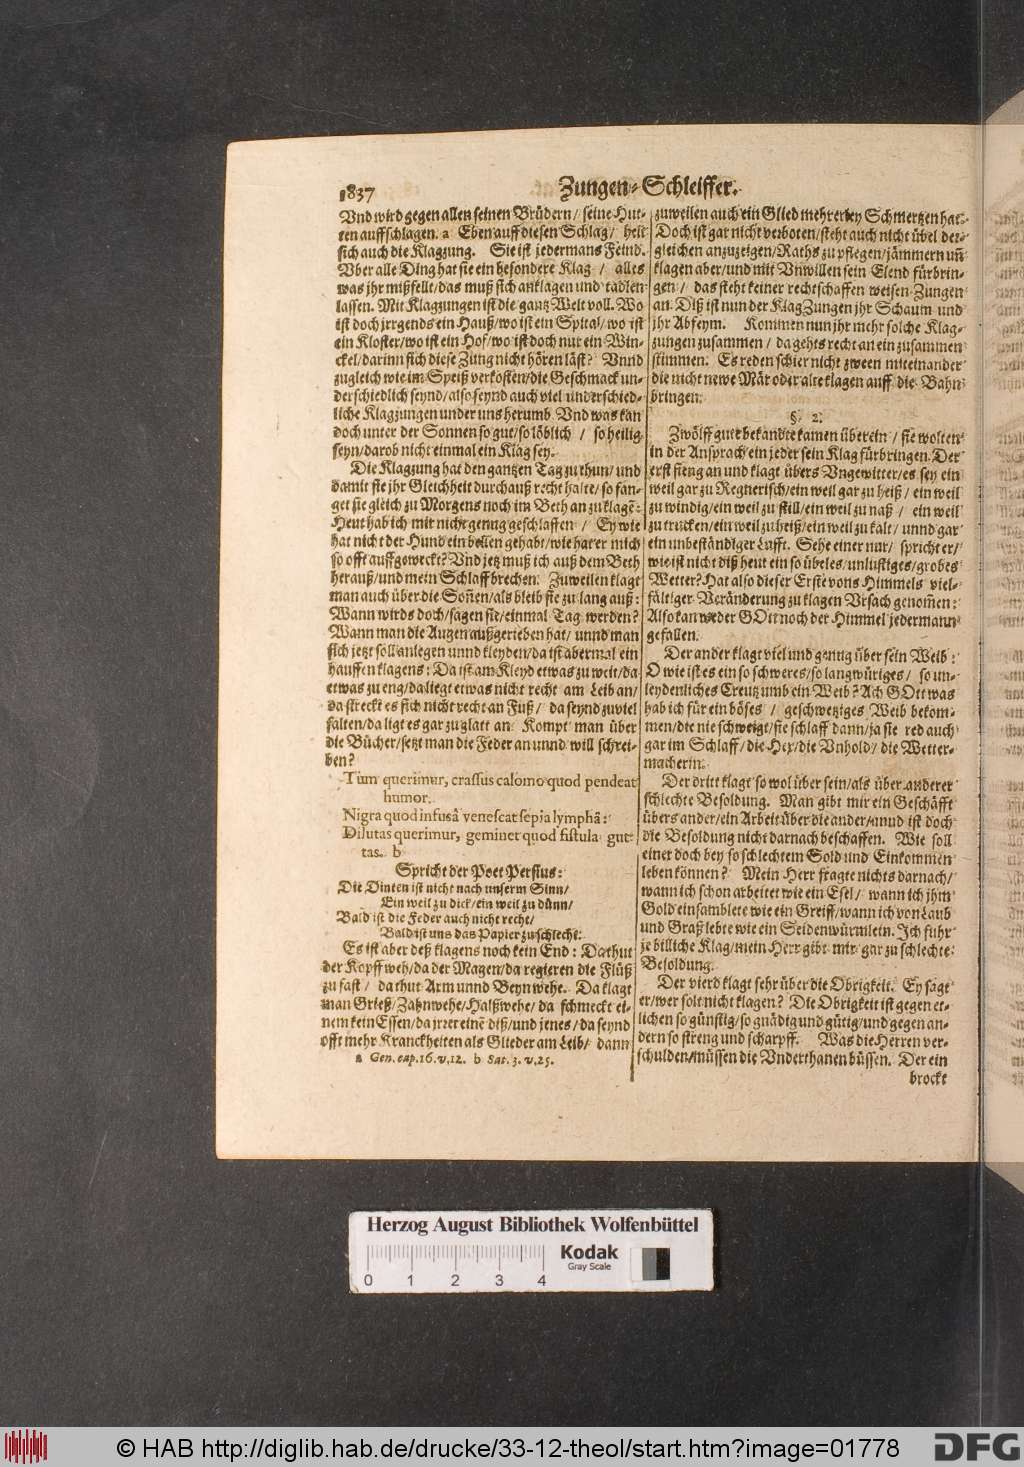 1837
Zungen-Schleiffer.
Vnd wird gegen allen seinen Brüdern / seine Hut-
ten auffschlagen. a Eben auff diesen Schlag / helt
sich auch die Klagzung. Sie ist jedermans Feind.
Vber alle Ding hat sie ein besondere Klag / alles
was jhr mißfellt / das muß sich anklagen und tadlen
lassen. Mit Klagzungen ist die gantz Welt voll. Wo
ist doch jrrgends ein Hauß / wo ist ein Spital / wo ist
ein Kloster / wo ist ein Hof / wo ist doch nur ein Win-
ckel / darinn sich diese Zung nicht hören läst? Vnnd
zugleich wie im Speiß verkosten / die Geschmack un-
derschiedlich seynd / also seynd auch viel underschied-
liche Klagzungen under uns herumb. Vnd was kan
doch unter der Sonnen so gut / so löblich / so heilig
seyn / darob nicht einmal ein Klag sey.
Die Klagzung hat den gantzen Tag zu thun / und
damit sie jhr Gleichheit durchauß recht halte / so fan-
get sie gleich zu Morgens noch im Beth an zu klagē:
Heut hab ich mir nicht genug geschlaffen / Ey wie
hat nicht der Hund ein bellen gehabt / wie hat er mich
so offt auffgeweckt? Vnd jetz muß ich auß dem Beth
herauß / und mein Schlaff brechen. Zuweilen klagt
man auch über die Soñen / als bleib sie zu lang auß:
Wann wirds doch / sagen sie / einmal Tag werden?
Wann man die Augen außgerieben hat / unnd man
sich jetzt soll anlegen unnd kleyden / da ist abermal ein
hauffen klagens: Da ist am Kleyd etwas zu weit / da
etwas zu eng / da liegt etwas nicht recht am Leib an /
da streckt es sich nicht recht an Fuß / da seynd zu viel
falten / da ligt es gar zu glatt an. Kompt man über
die Bücher / setzt man die Feder an unnd will schrei-
ben?
Tùm querimur, crassus calomo quod pendeat
humor.
Nigra quod infusâ venescat sepia lymphâ:
Dilutas querimur, geminet quod fistula gut-
tas. b
Spricht der Poet Persius:
Die Dinten ist nicht nach unserm Sinn /
Ein weil zu dick / ein weil zu dünn /
Bald ist die Feder auch nicht recht /
Bald ist uns das Papier zu schlecht.
Es ist aber deß klagens noch kein End: Da thut
der Kopff weh / da der Magen / da regieren die Flüß
zu fast / da thut Arm unnd Beyn wehe. Da klagt
man Grieß / Zahnwehe / Halßwehe / da schmeckt ei-
nem kein Essen / da jrret einē diß / und jenes / da seynd
offt mehr Kranckheiten als Glieder am Leib / dann
a Gen. cap. 16. v. 12. b Sat. 3. v. 25.
zuweilen auch ein Glied mehrerley Schmertzen hat.
Doch ist gar nicht verboten / steht auch nicht übel der-
gleichen anzuzeigen / Raths zu pflegen / jämmern uñ
klagen aber / und mit Vnwillen sein Elend fürbrin-
gen / das steht keiner rechtschaffen weisen Zungen
an. Diß ist nun der Klag Zungen jhr Schaum und
jhr Abfeym. Kommen nun jhr mehr solche Klag-
zungen zusammen / da gehts recht an ein zusammen
stimmen. Es reden schier nicht zween miteinander
die nicht newe Mär oder alte klagen auff die Bahn
bringen.
§. 2.
Zwölff gute bekandte kamen überein / sie wolten
in der Ansprach ein jeder sein Klag fürbringen. Der
erst fieng an und klagt übers Vngewitter / es sey ein
weil gar zu Regnerisch / ein weil gar zu heiß / ein weil
zu windig / ein weil zu still / ein weil zu naß / ein weil
zu trucken / ein weil zu heiß / ein weil zu kalt / unnd gar
ein unbeständiger Lufft. Sehe einer nur / spricht er /
wie ist nicht diß heut ein so übeles / unlustiges / grobes
Wetter? Hat also dieser Erste vons Himmels viel-
fältiger Veränderung zu klagen Vrsach genom̃en:
Also kan weder GOtt noch der Himmel jedermann
gefallen.
Der ander klagt viel und genug über sein Weib:
O wie ist es ein so schweres / so langwüriges / so un-
leydenliches Creutz umb ein Weib? Ach GOtt was
hab ich für ein böses / geschwetziges Weib bekom-
men / die nie schweigt / sie schlaff dann / ja sie red auch
gar im Schlaff / die Hex / die Vnhold / die Wetter-
macherin.
Der dritt klagt so wol über sein / als über anderer
schlechte Besoldung. Man gibt mir ein Geschäfft
übers ander / ein Arbeit über die ander / unnd ist doch
die Besoldung nicht darnach beschaffen. Wie soll
einer doch bey so schlechtem Sold und Einkommen
leben können? Mein Herr fragte nichts darnach /
wann ich schon arbeitet wie ein Esel / wann ich jhm
Gold einsamblete wie ein Greiff / wann ich von Laub
und Graß lebte wie ein Seidenwürmlein. Ich führ
je billiche Klag / mein Herr gibt mir gar zu schlechte
Besoldung.
Der vierd klagt sehr über die Obrigkeit. Ey sagt
er / wer solt nicht klagen? Die Obrigkeit ist gegen et-
lichen so günstig / so gnädig und gütig / und gegen an-
dern so streng und scharpff. Was die Herren ver-
schulden / müssen die Vnderthanen büssen. Der ein
brockt
Herzog August Bibliothek Wolfenbüttel
Kodak
Gray Scale
0 1 2 3 4
© HAB http://diglib.hab.de/drucke/33-12-theol/start.htm?image=01778
DFG